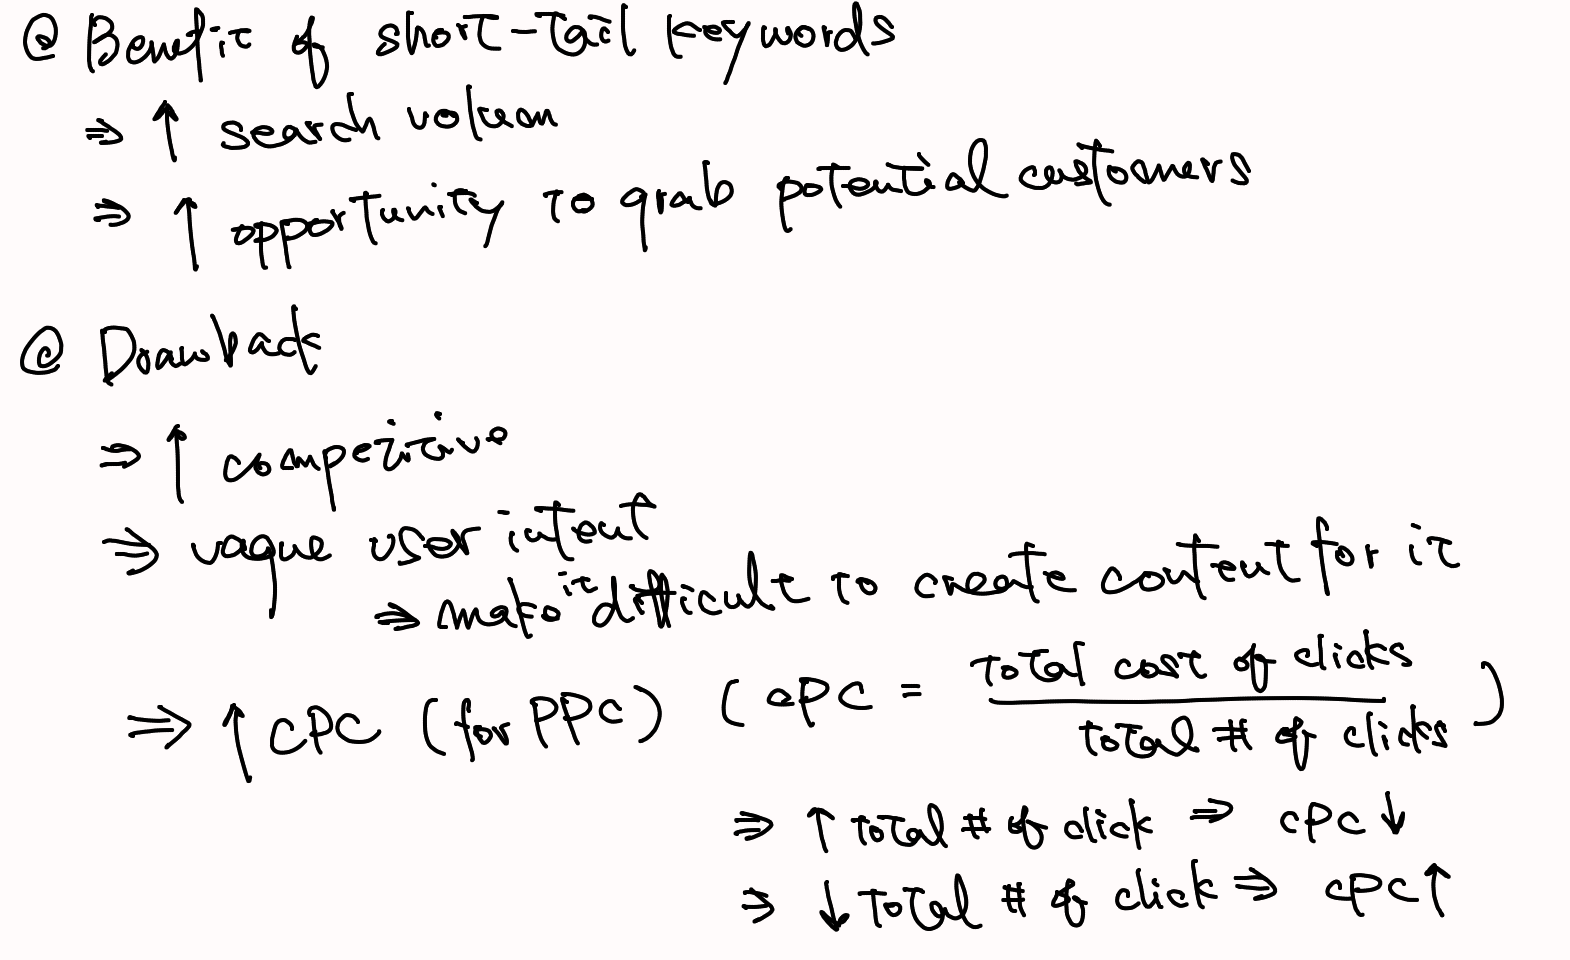 @ Benefit of short-tail keywords
⇒ ↑ search volum
⇒ ↑ opportunity to grab potential customers
@ Drawback
⇒ ↑ competitive
⇒ vague user intent
⇒ make it difficult to create content for it
⇒ ↑ CPC (for PPC) (CPC = total cost of clicks / total # of clicks)
⇒ ↑ total # of click ⇒ CPC ↓
⇒ ↓ total # of click ⇒ CPC ↑